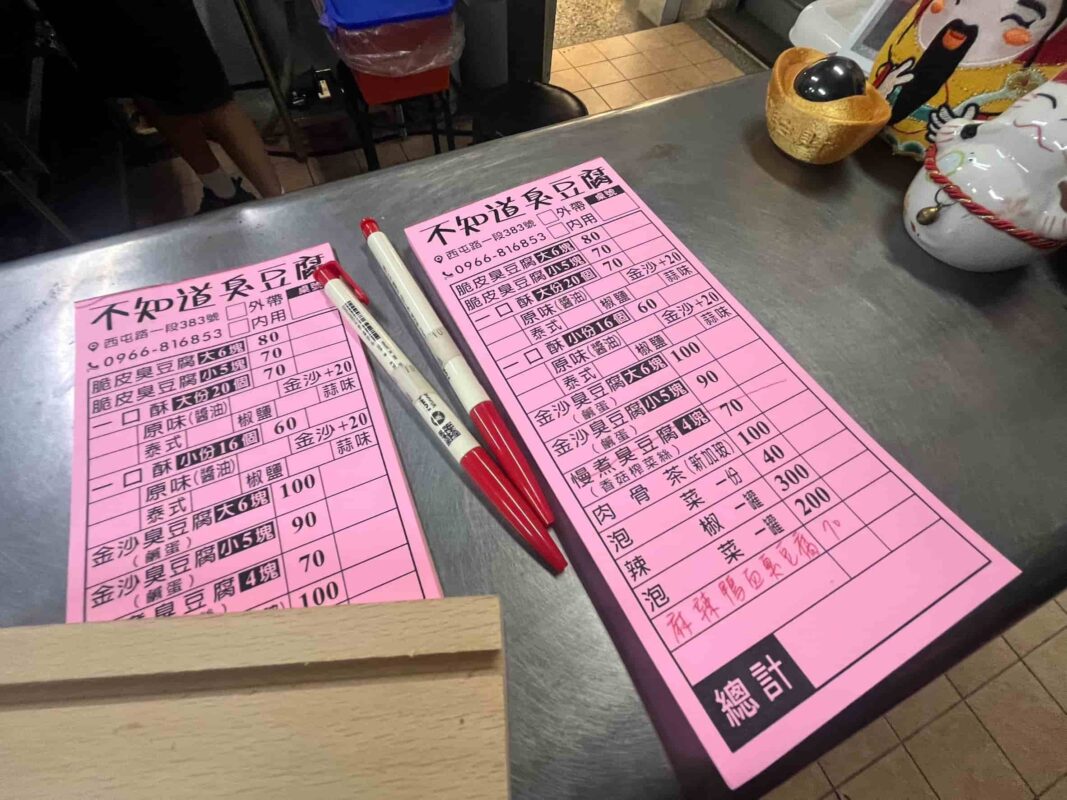 不知道臭豆腐 桌號
西屯路一段383號 外帶
0966-816853 內用
脆皮臭豆腐 大6塊 80
脆皮臭豆腐 小5塊 70
一口酥 大份20個
原味(醬油) 椒鹽 金沙+20
泰式 蒜味
一口酥 小份16個 60
原味(醬油) 椒鹽 金沙+20
泰式 蒜味
金沙臭豆腐 大6塊 100
(鹹蛋)
金沙臭豆腐 小5塊 90
(鹹蛋)
慢煮臭豆腐 4塊 70
100
不知道臭豆腐 桌號
西屯路一段383號 外帶
0966-816853 內用
脆皮臭豆腐 大6塊 80
脆皮臭豆腐 小5塊 70
一口酥 大份20個 70
原味(醬油) 椒鹽 金沙+20
泰式 蒜味
一口酥 小份16個 60
原味(醬油) 椒鹽 金沙+20
泰式 蒜味
金沙臭豆腐 大6塊 100
(鹹蛋)
金沙臭豆腐 小5塊 90
(鹹蛋)
慢煮臭豆腐 4塊 70
(香菇榨菜絲)
肉骨茶(新加坡) 100
泡菜 一份 40
辣椒 一罐 300
泡菜 一罐 200
麻辣鴨血臭豆腐 70
總計